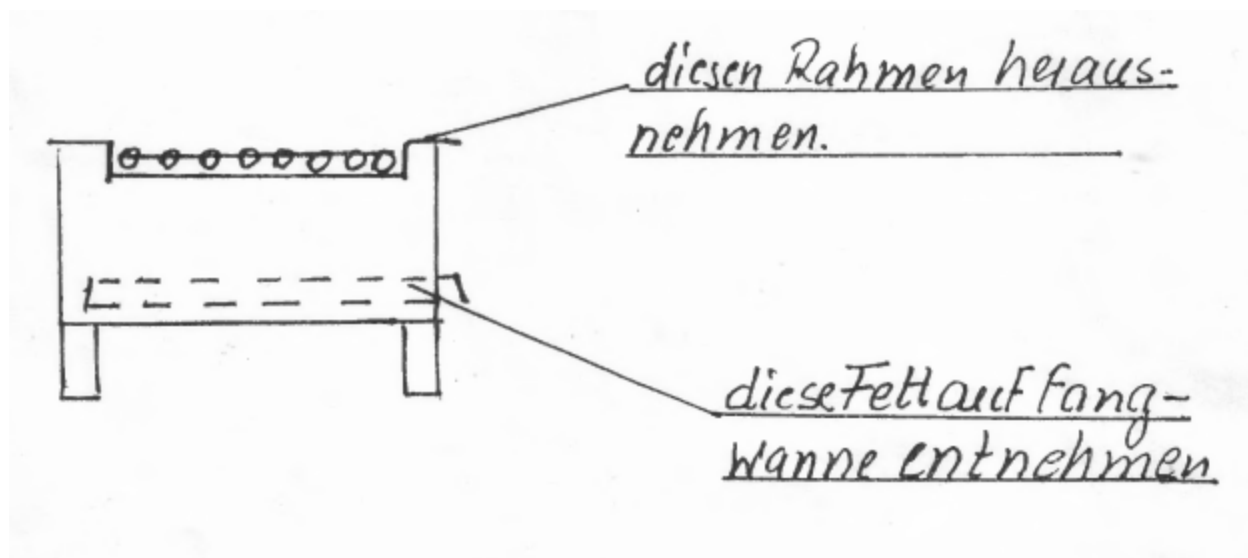 diesen Rahmen heraus-
nehmen.
diese Fettauffang-
wanne entnehmen